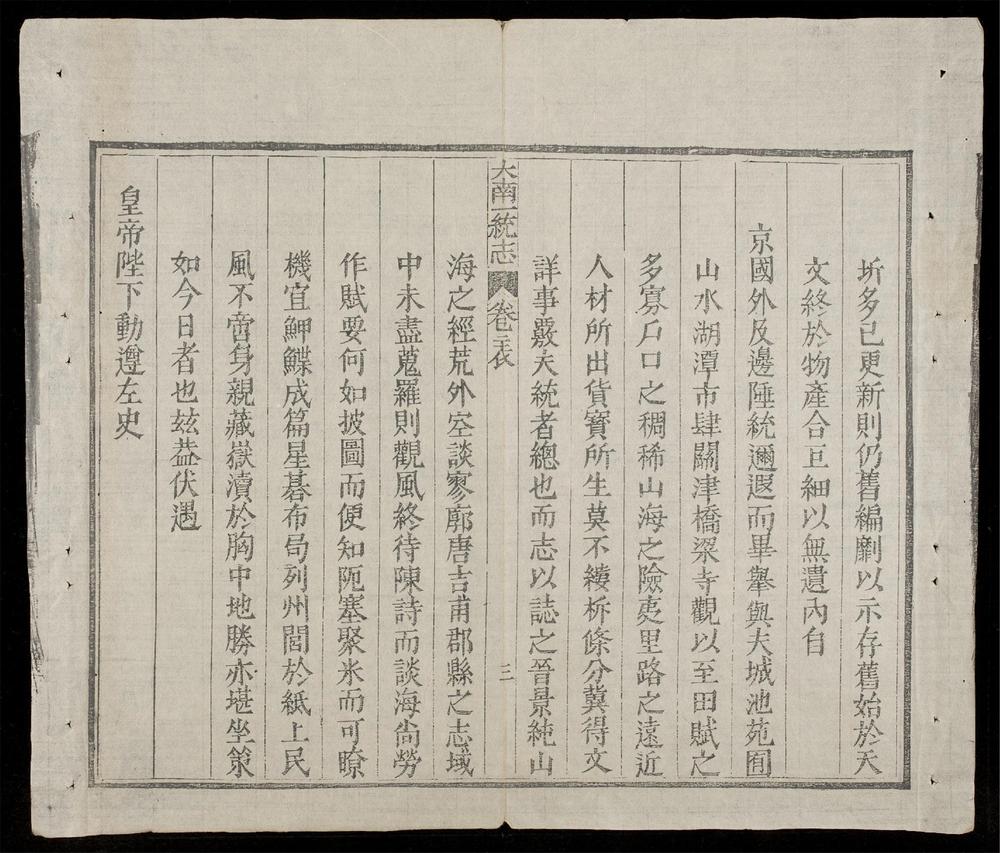 圻多已更新則仍舊編劘以示存舊始於天
文終於物產合巨細以無遺內自
京國外及邊陲統邇遐而畢舉與夫城池苑囿
山水湖潭市肆關津橋梁寺觀以至田賦之
多寡戶口之稠稀山海之險夷里路之遠近
人材所出貨寶所生莫不縷柝條分冀得文
詳事覈夫統者總也而志以誌之晉景純山
大南一統志 卷之表 三
海之經荒外空談寥廓唐吉甫郡縣之志域
中未盡蒐羅則觀風終待陳詩而談海尚勞
作賦要何如披圖而便知阨塞聚米而可瞭
機宜魻鰈成篇星碁布局列州閭於紙上民
風不啻身親藏嶽瀆於胸中地勝亦堪坐策
如今日者也玆葢伏遇
皇帝陛下動遵左史